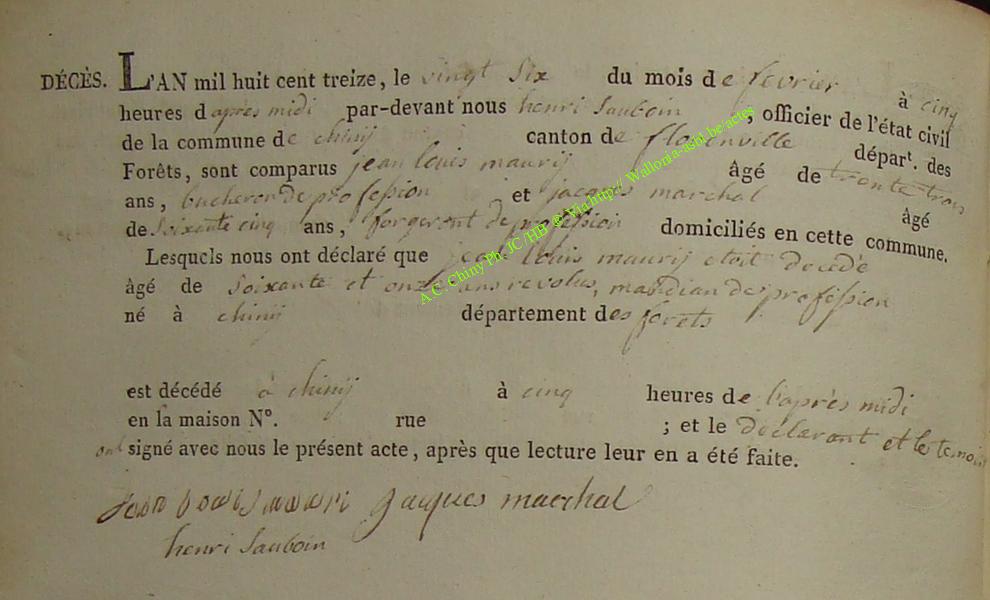 DÉCÈS. L'AN mil huit cent treize, le vingt six du mois de fevrier à cinq
heures d après midi par-devant nous henri Sauboin, officier de l'état civil
de la commune de chinÿ canton de florenville départ. des
Forêts, sont comparus jean louis maurÿ âgé de trente trois
ans, bucheron de profession et jacques marchal âgé
de soixante cinq ans, forgeront de profession domiciliés en cette commune.
Lesquels nous ont déclaré que jean louis maurÿ etoit decedé
âgé de soixante et onze ans revolus, mandian de profession
né à chinÿ département des forets
est décédé à chinÿ à cinq heures de l'après midi
en la maison N°. rue ; et le declarant et le temoin
ont signé avec nous le présent acte, après que lecture leur en a été faite.
Jean Louis mauri jacques marchal
henri Sauboin
A.C. Chiny Ph. JC /HB & Via http:// Wallonia-asbl.be/actes